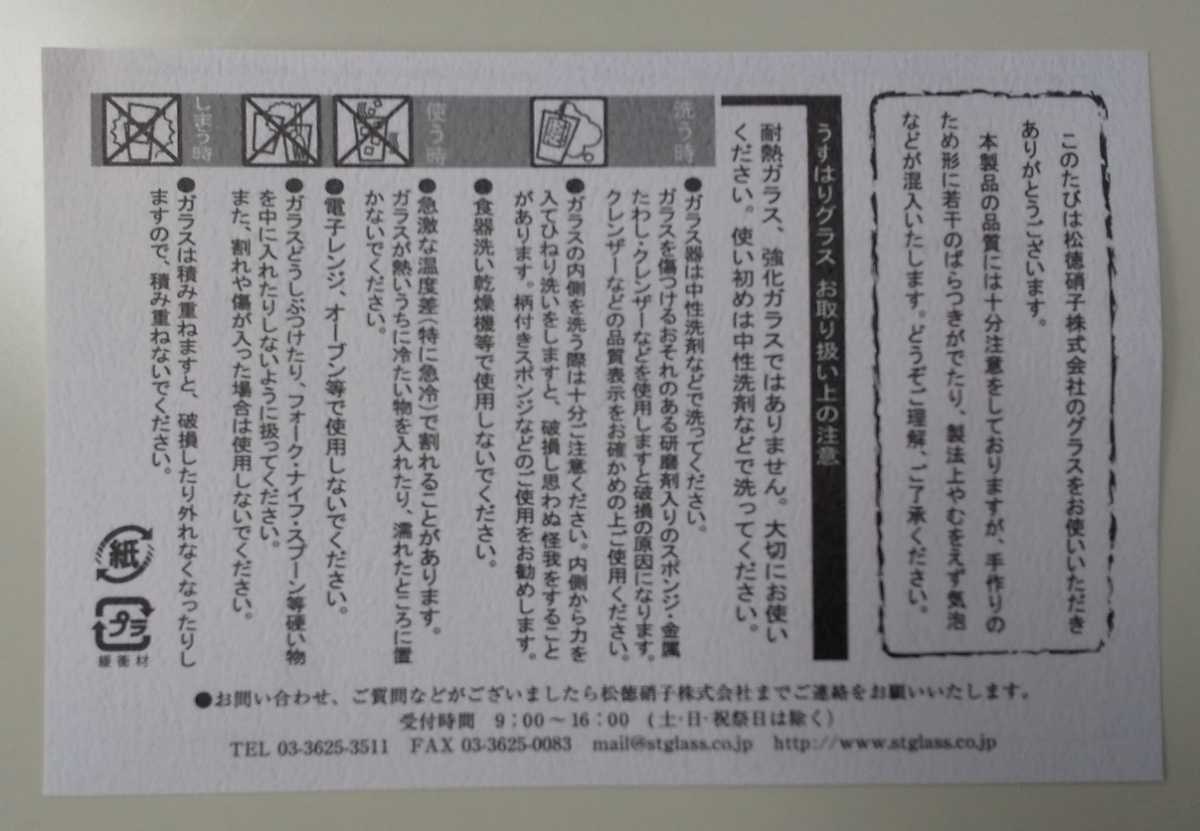 このたびは松徳硝子株式会社のグラスをお使いいただき
ありがとうございます。
本製品の品質には十分注意をしておりますが、手作りの
ため形に若干のばらつきがでたり、製法上やむをえず気泡
などが混入いたします。どうぞご理解、ご了承ください。
うすはりグラス、お取り扱い上の注意
耐熱ガラス、強化ガラスではありません。大切にお使い
ください。使い初めは中性洗剤などで洗ってください。
洗う時
●ガラス器は中性洗剤などで洗ってください。
ガラスを傷つけるおそれのある研磨剤入りのスポンジ・金属
たわし・クレンザーなどを使用しますと破損の原因になります。
クレンザーなどの品質表示をお確かめの上ご使用ください。
●ガラスの内側を洗う際は十分ご注意ください。内側から力を
入てひねり洗いをしますと、破損し思わぬ怪我をすること
があります。柄付きスポンジなどのご使用をお勧めします。
●食器洗い乾燥機等で使用しないでください。
使う時
●急激な温度差(特に急冷)で割れることがあります。
ガラスが熱いうちに冷たい物を入れたり、濡れたところに置
かないでください。
●電子レンジ、オーブン等で使用しないでください。
●ガラスどうしぶつけたり、フォーク・ナイフ・スプーン等硬い物
を中に入れたりしないように扱ってください。
また、割れや傷が入った場合は使用しないでください。
しまう時
●ガラスは積み重ねますと、破損したり外れなくなったりし
ますので、積み重ねないでください。
紙
プラ
緩衝材
●お問い合わせ、ご質問などがございましたら松徳硝子株式会社までご連絡をお願いいたします。
受付時間 9:00〜16:00 (土・日・祝祭日は除く)
TEL 03-3625-3511 FAX 03-3625-0083 mail@stglass.co.jp http://www.stglass.co.jp